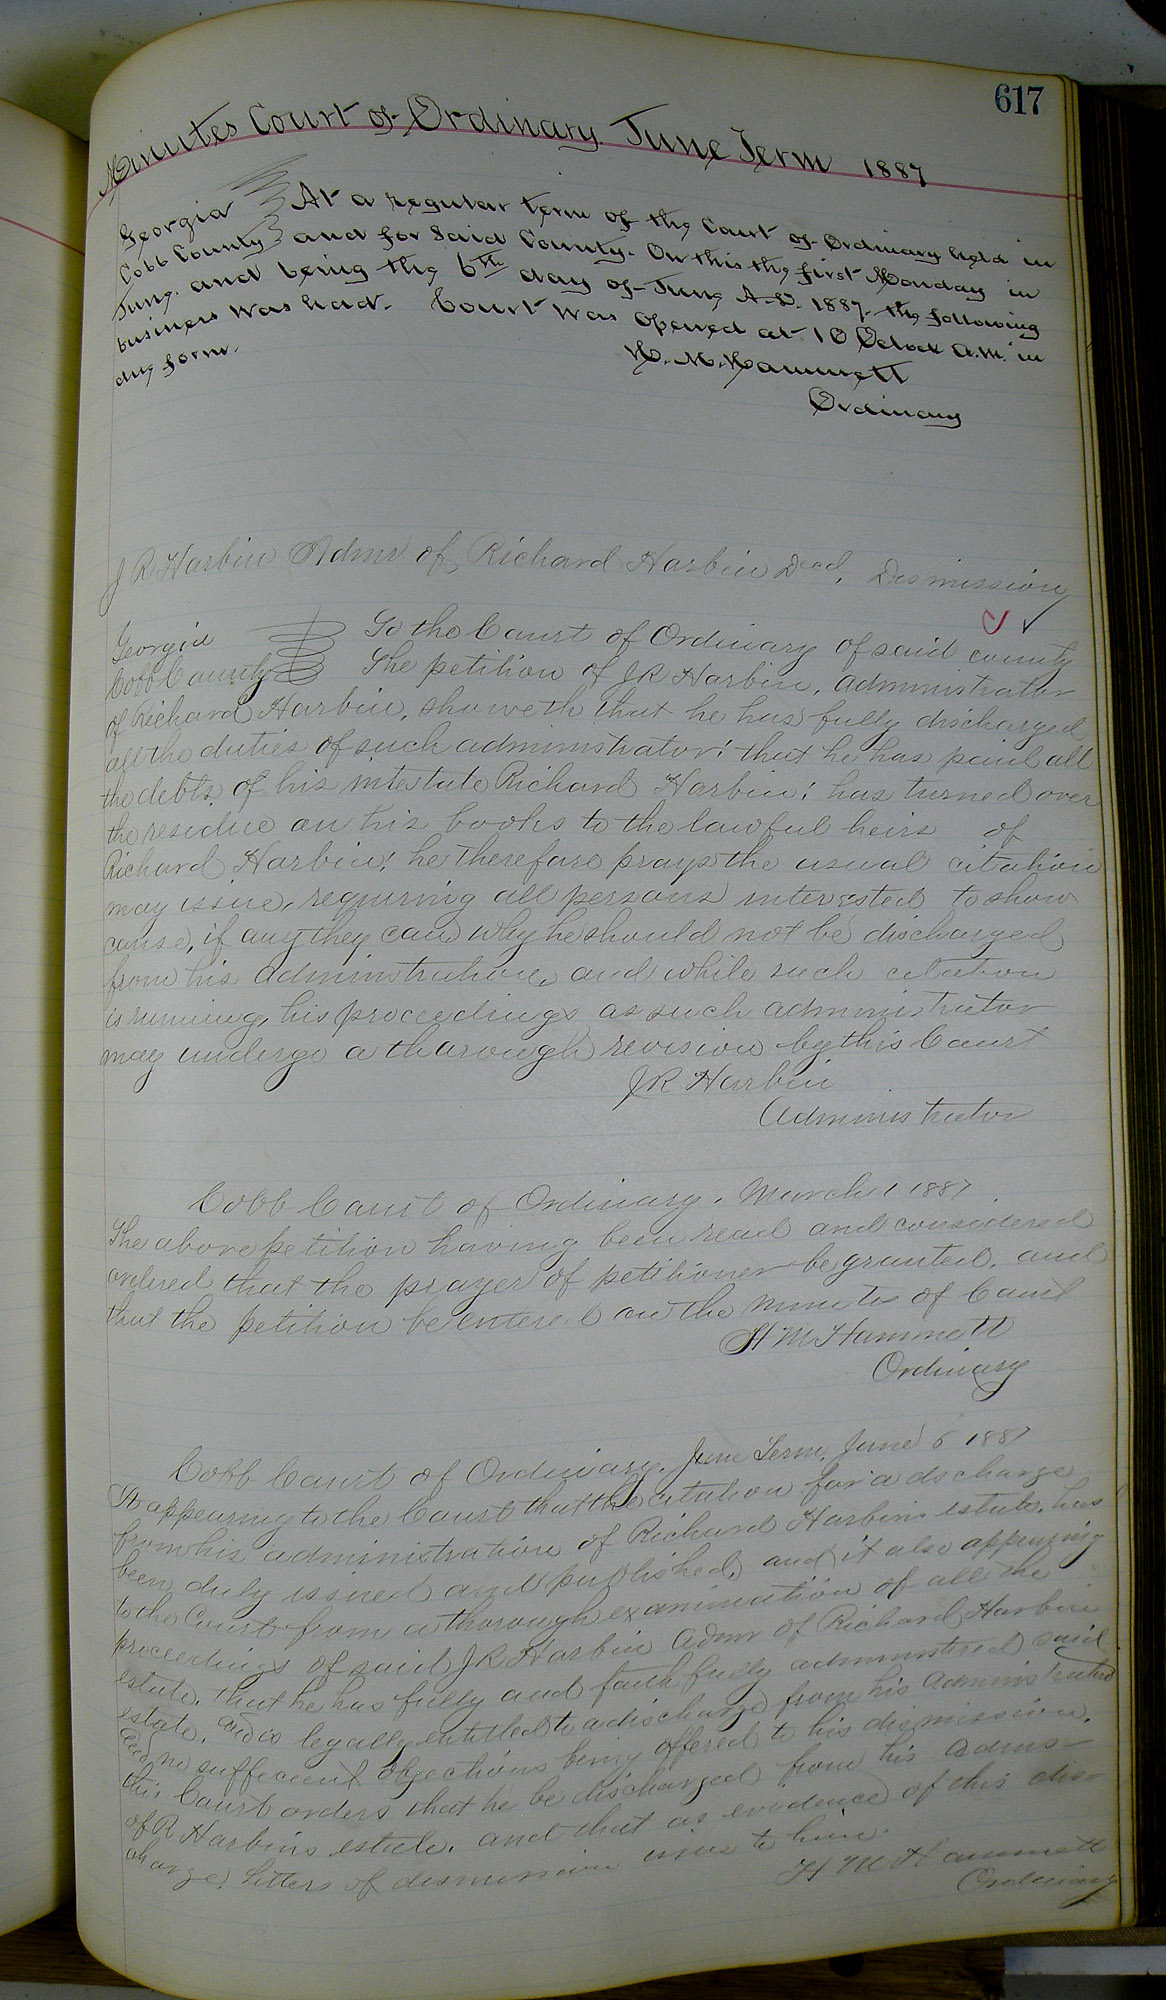 617
Minutes Court of Ordinary June Term 1887
Georgia } At a regular term of the Court of Ordinary held in
Cobb County } and for Said County. On this the first Monday in
June. and being the 6th day of June A.D. 1887 the following
business was had. Court was opened at 10 Oclock a.m. in
due form.
H. M. Hammett
Ordinary
J R Harbin Admr of Richard Harbin Decd, Dismission
Georgia } To the Court of Ordinary of said county
Cobb County } The petition of J R Harbin, administrator
of Richard Harbin, showeth that he has fully discharged
all the duties of such administrator; that he has paid all
the debts of his intestate Richard Harbin; has turned over
the residue on his books to the lawful heirs of
Richard Harbin; he therefore prays the usual citation
may issue, requiring all persons interested to show
cause, if any they can why he should not be discharged
from his administration, and while such citation
is running, his proceedings as such administrator
may undergo a thorough revision by this Court
J R Harbin
Administrator
Cobb Court of Ordinary. March 1 1887.
The above petition having been read and considered
ordered that the prayer of petitioner be granted. and
that the petition be entered on the minutes of Court
H M Hammett
Ordinary
Cobb Court of Ordinary. June Term, June 6 1887
It appearing to the Court that the citation for a discharge
from his administration of Richard Harbins estate. has
been duly issued and published, and it also appearing
to the Court from a thorough examination of all the
proceedings of said J R Harbin Admr of Richard Harbin
estate. that he has fully and faithfully administered said
estate. and is legally entitled to a discharge from his administration
and no sufficient objections being offered to his dismission.
this Court orders that he be discharged from his Adms-
of R Harbins estate. and that as evidence of this dis-
charge, letters of dismission issue to him.
H M Hammett
Ordinary